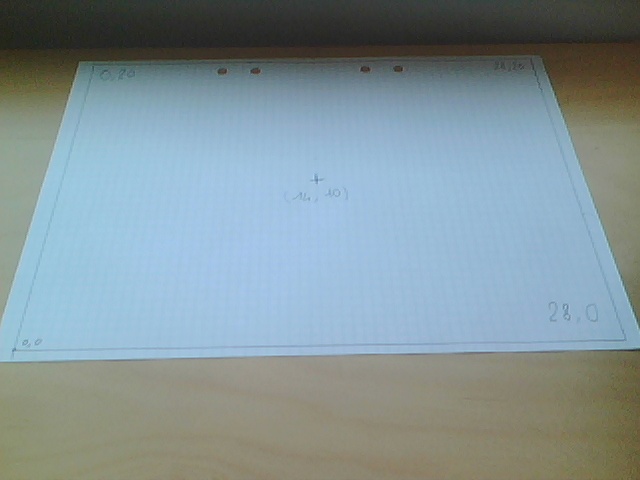 0,20
28,20
(14, 10)
28,0
0,0